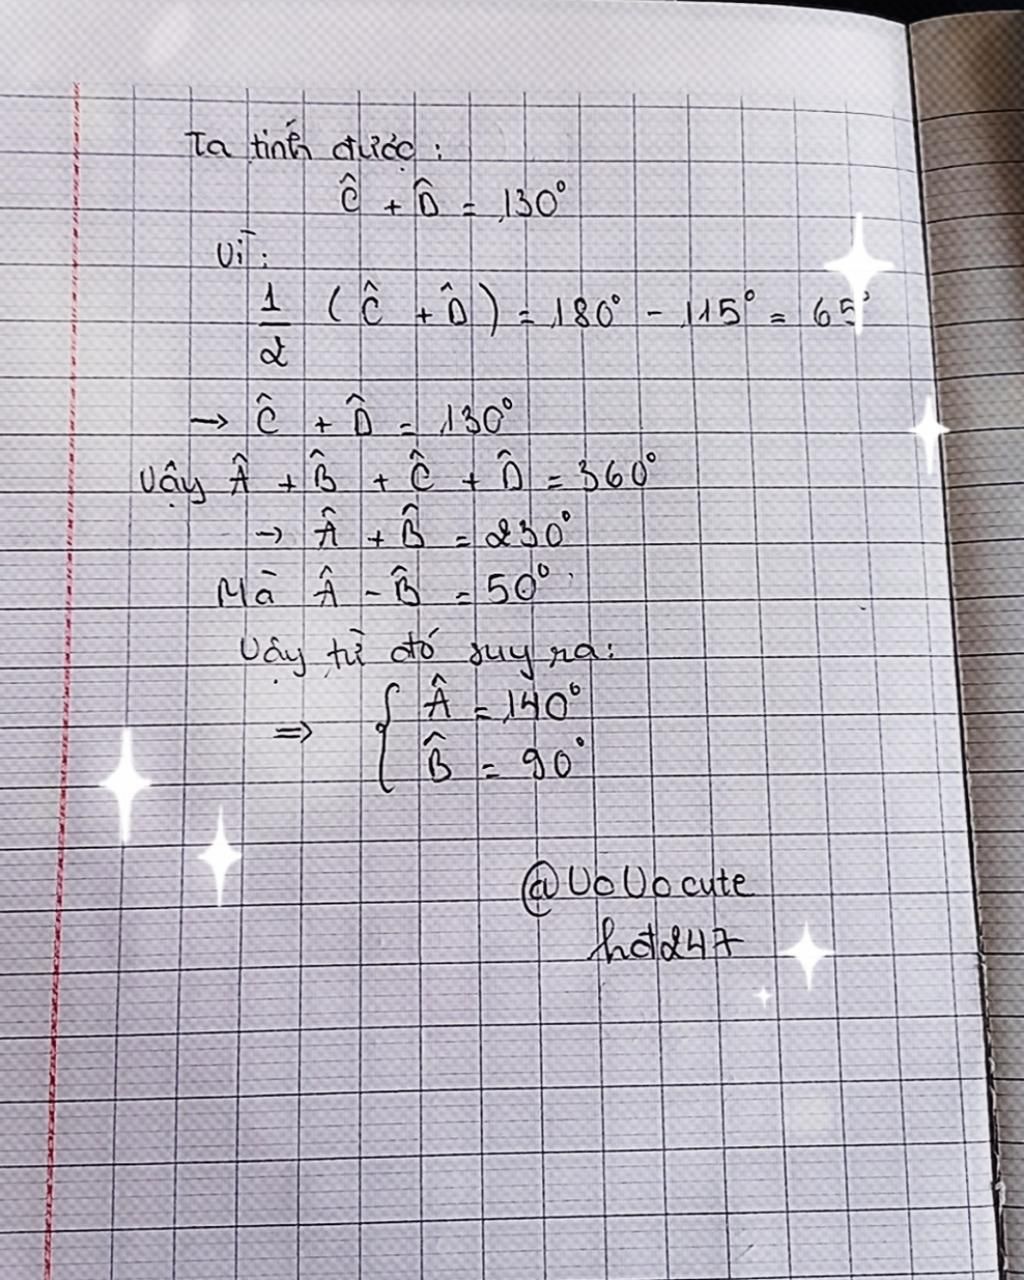 Ta tính được:
Ĉ + D̂ = 130°
Vì:
1/2 (Ĉ + D̂) = 180° - 115° = 65°
→ Ĉ + D̂ = 130°
Vậy Â + B̂ + Ĉ + D̂ = 360°
→ Â + B̂ = 230°
Mà Â - B̂ = 50°
Vậy từ đó suy ra:
⇒ { Â = 140°
B̂ = 90°
@UoUocute
hot247